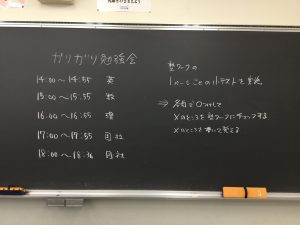 ガリガリ勉強会
14:00～14:55 英
15:00～15:55 数
16:00～16:55 理
17:00～17:55 国社
18:00～18:30 国社
塾ワークの
1ページごとの小テストを実施
⇒ 各自で○つけして
×のところを塾ワークにチェックする
×のところを書いて覚える